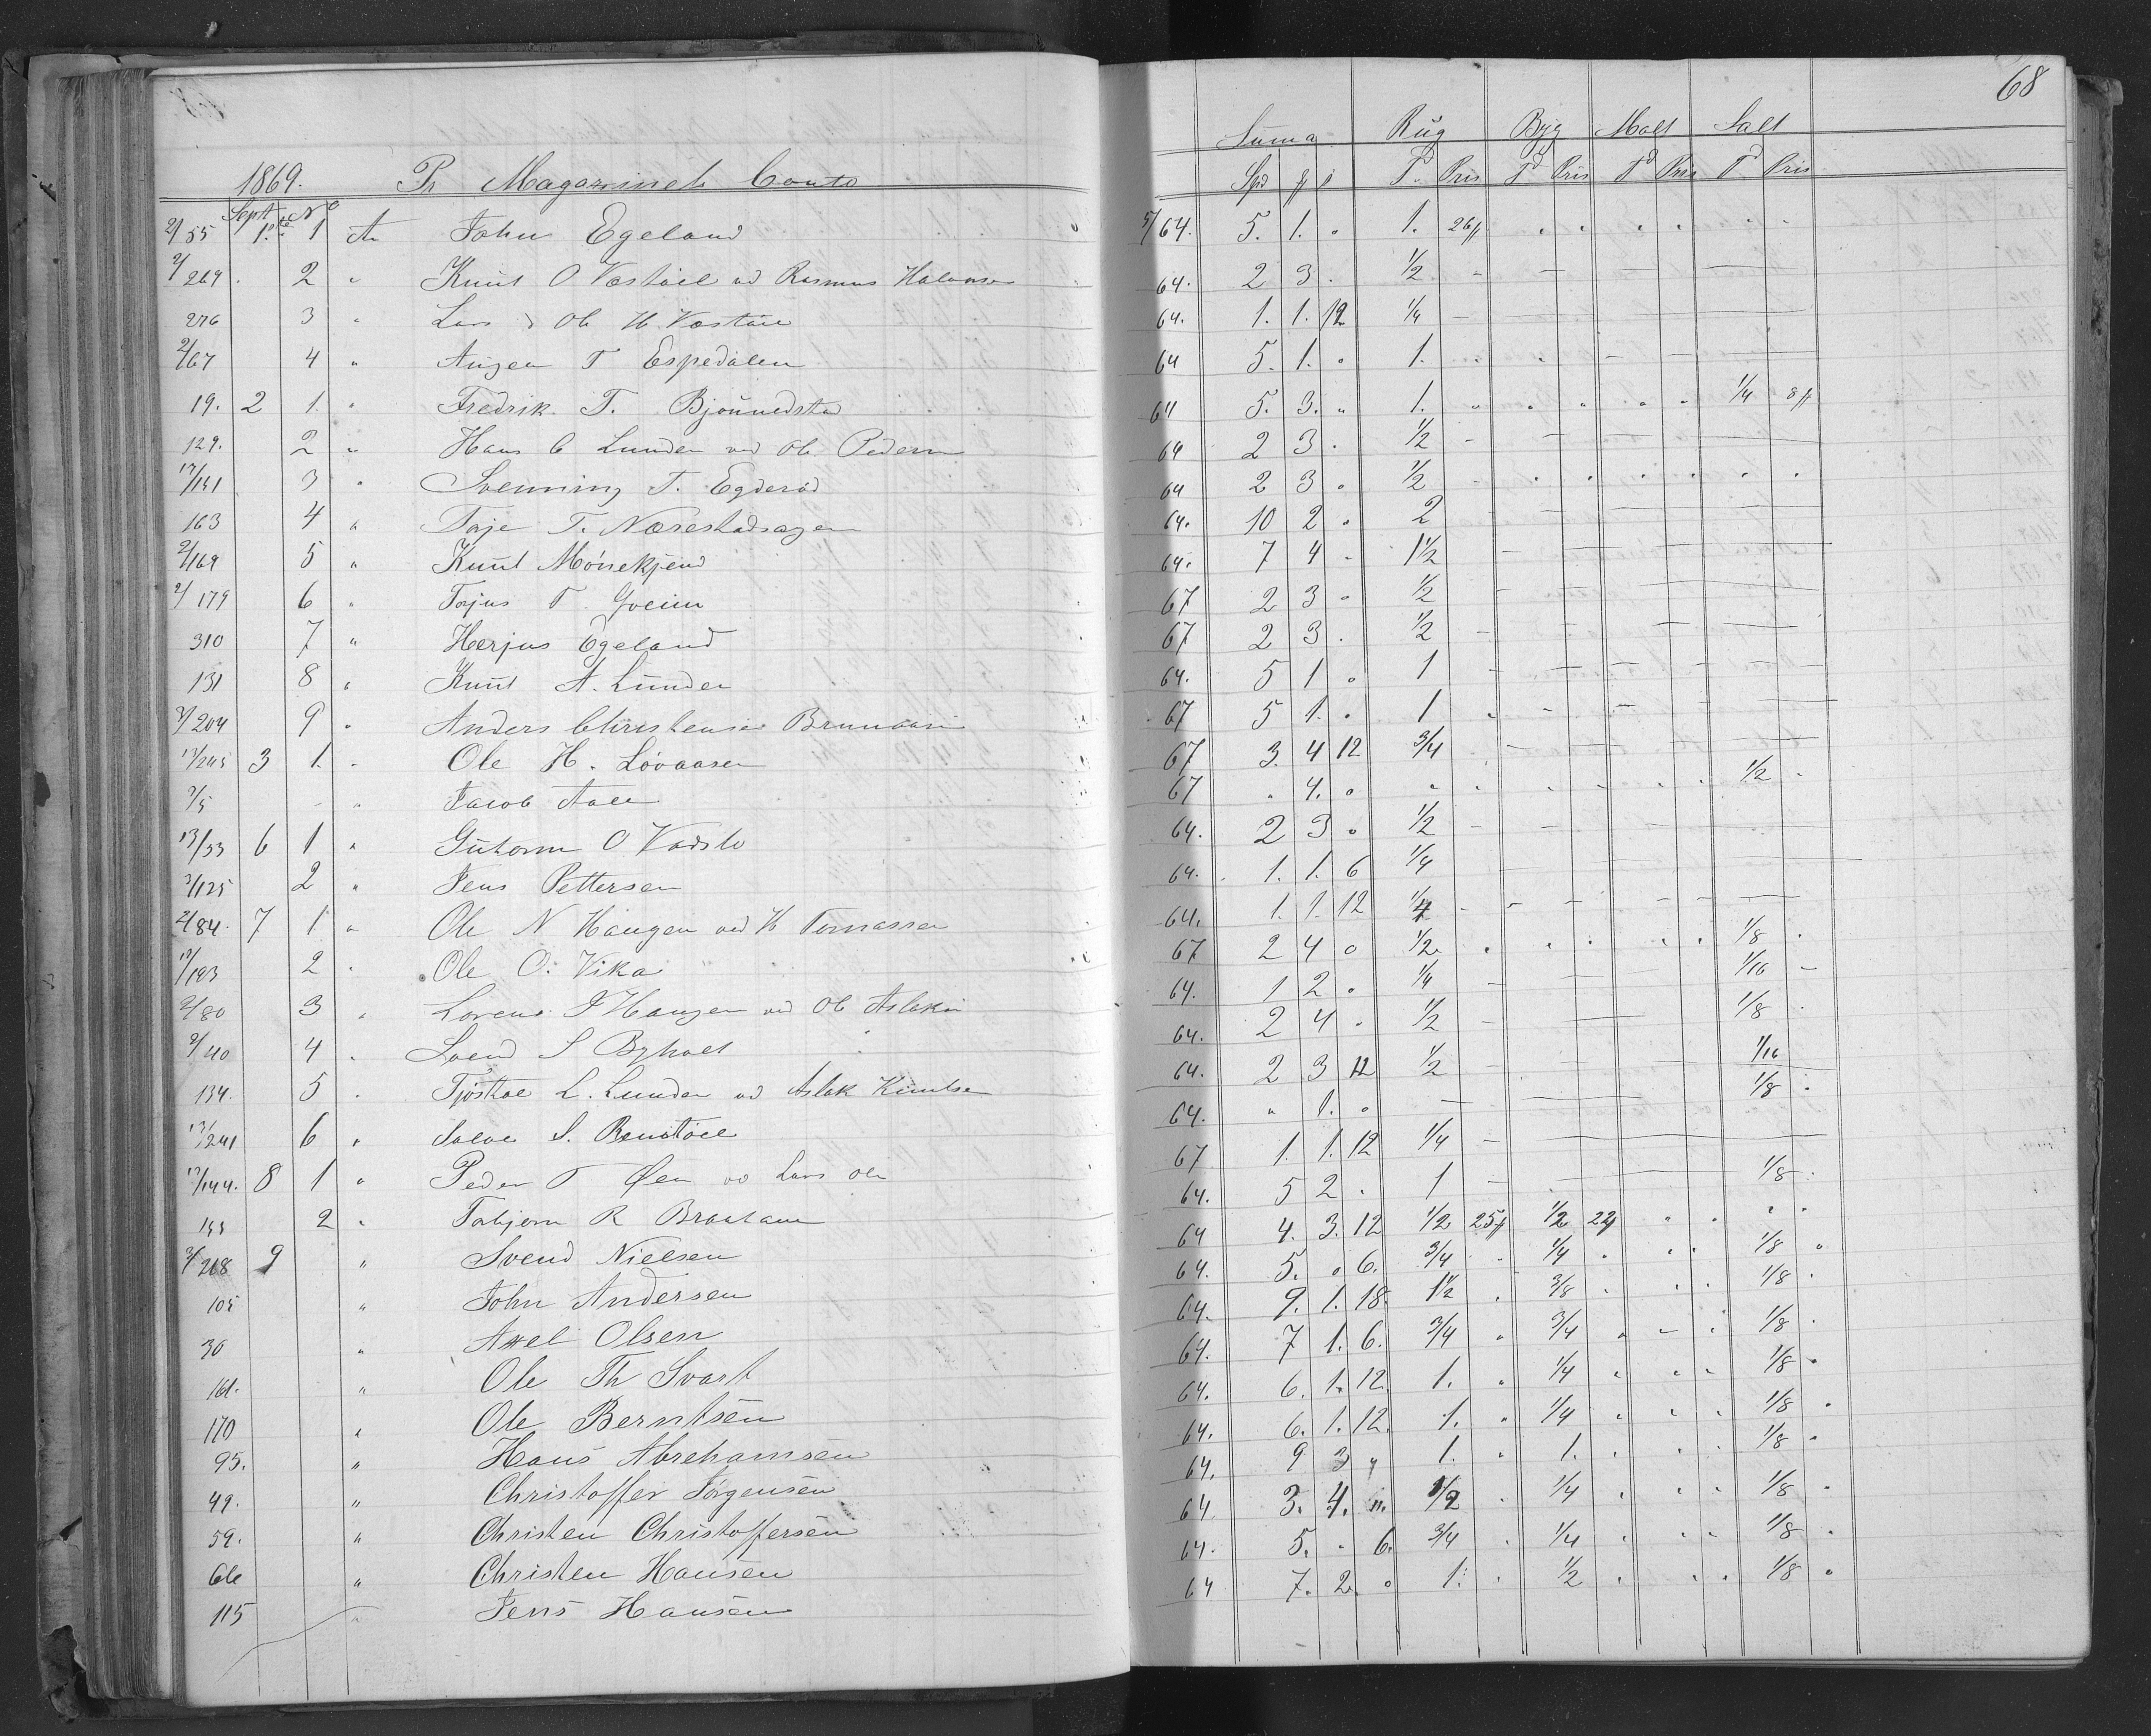 68
1869. Pr Magazinets Conto
Suma Rug Byg Malt Salt
Sept No Spd T. Pris Td Pris Td Pris Td Pris
2/55 1ste 1 An John Egeland 5/64. 5. 1. " 1. 26
2/269 2 " Knut O Væstøel ved Rasmus 64. 2 3 . 1/2 -
276 3 " Lars Ole H. Væstøel 64. 1. 1. 12 1/4 -
2/67 4 " T Espedalen 64 5. 1. " 1. "
19. 2 1. " Fredrik T. Bjønnedstad 64 5. 3. " 1. " 1/4 8
129. 2 " Hans C Lunden ved Ole Pedersen 64 2 3 . 1/2 -
12/151 3 " Svenning T. Egderød 64 2 3 " 1/2 -
163 4 " Terje T. Næsestadhagen 64. 10 2 " 2 -
2/169 5 " Knut Mørekjend 64. 7 4 - 1 1/2 -
2/179 6 " Torjus T. Gveim 67 2 3 " 1/2 -
310 7 " Herjus Egeland 67 2 3 . 1/2 -
131 8 " Knut A. Lunden 64. 5 1 " 1 -
3/204 9 " Anders Christensen Brunaasen 67 5 1. " 1 "
13/245 3 1. " Ole H. Løvaasen 67 3. 4 12 3/4
2/5 " Jacob Aall 67 " 4. " " 1/2
13/53 6 1 " Gutorm O Vadslo 64. 2 3 " 1/2 -
2/125 2 " Jens Pettersen 64. 1. 1. 6 1/4
2/84. 7 1 " Ole N Haugen ved H Tomassen 64. 1. 1. 12 1/4 -
12/193 2 " Ole O. Vika 67 2 4 0 1/2 " 1/8
2/80 3 " Lorens J Haugen ved Ole Aslaksen 64. 1 2 " 1/4 - 1/16 -
2/40 4 " Svend S Byholt 64. 2 4 " 1/2 - 1/8
134. 5 " Tjøstøl L. Lunden ved Aslak Knutsen 64. 2 3 12 1/2 - 1/16
13/241 6 " Salve S. Rønstøel 64. " 1. " - 1/8
12/144. 8 1 " Peder T Øen ved Lars Olsen 67 1. 1. 12 1/4 -
155 2 " Torbjørn R Braatane 64. 5 2 . 1 - 1/8
2/268 9 " Svend Nielsen 64 4. 3. 12 1/2 25 1/2 22
105 " John Andersen 64. 5. " 6. 3/4 1/4 1/8
36 " Axel Olsen 64. 9. 1. 18. 1 1/2 3/8 1/8
161. " Ole Th Svart 64. 7 1. 6. 3/4 " 3/4 1/8
170 " Ole Berntsen 64. 6. 1. 12. 1. 1/4 1/8
95. " Hans Abrehamsen 64. 6. 1. 12. 1. " 1/4 1/8
49. " Christoffer Jörgensen 64. 9 3 " 1. " 1. 1/8
59. " Christen Christoffersen 64 3. 4. ". 1/2 1/4 1/8
66 " Christen Hansen 64. 5. " 6. 3/4 1/4 1/8
115 " Jens Hansen 64 7. 2. " 1. 1/2 1/8